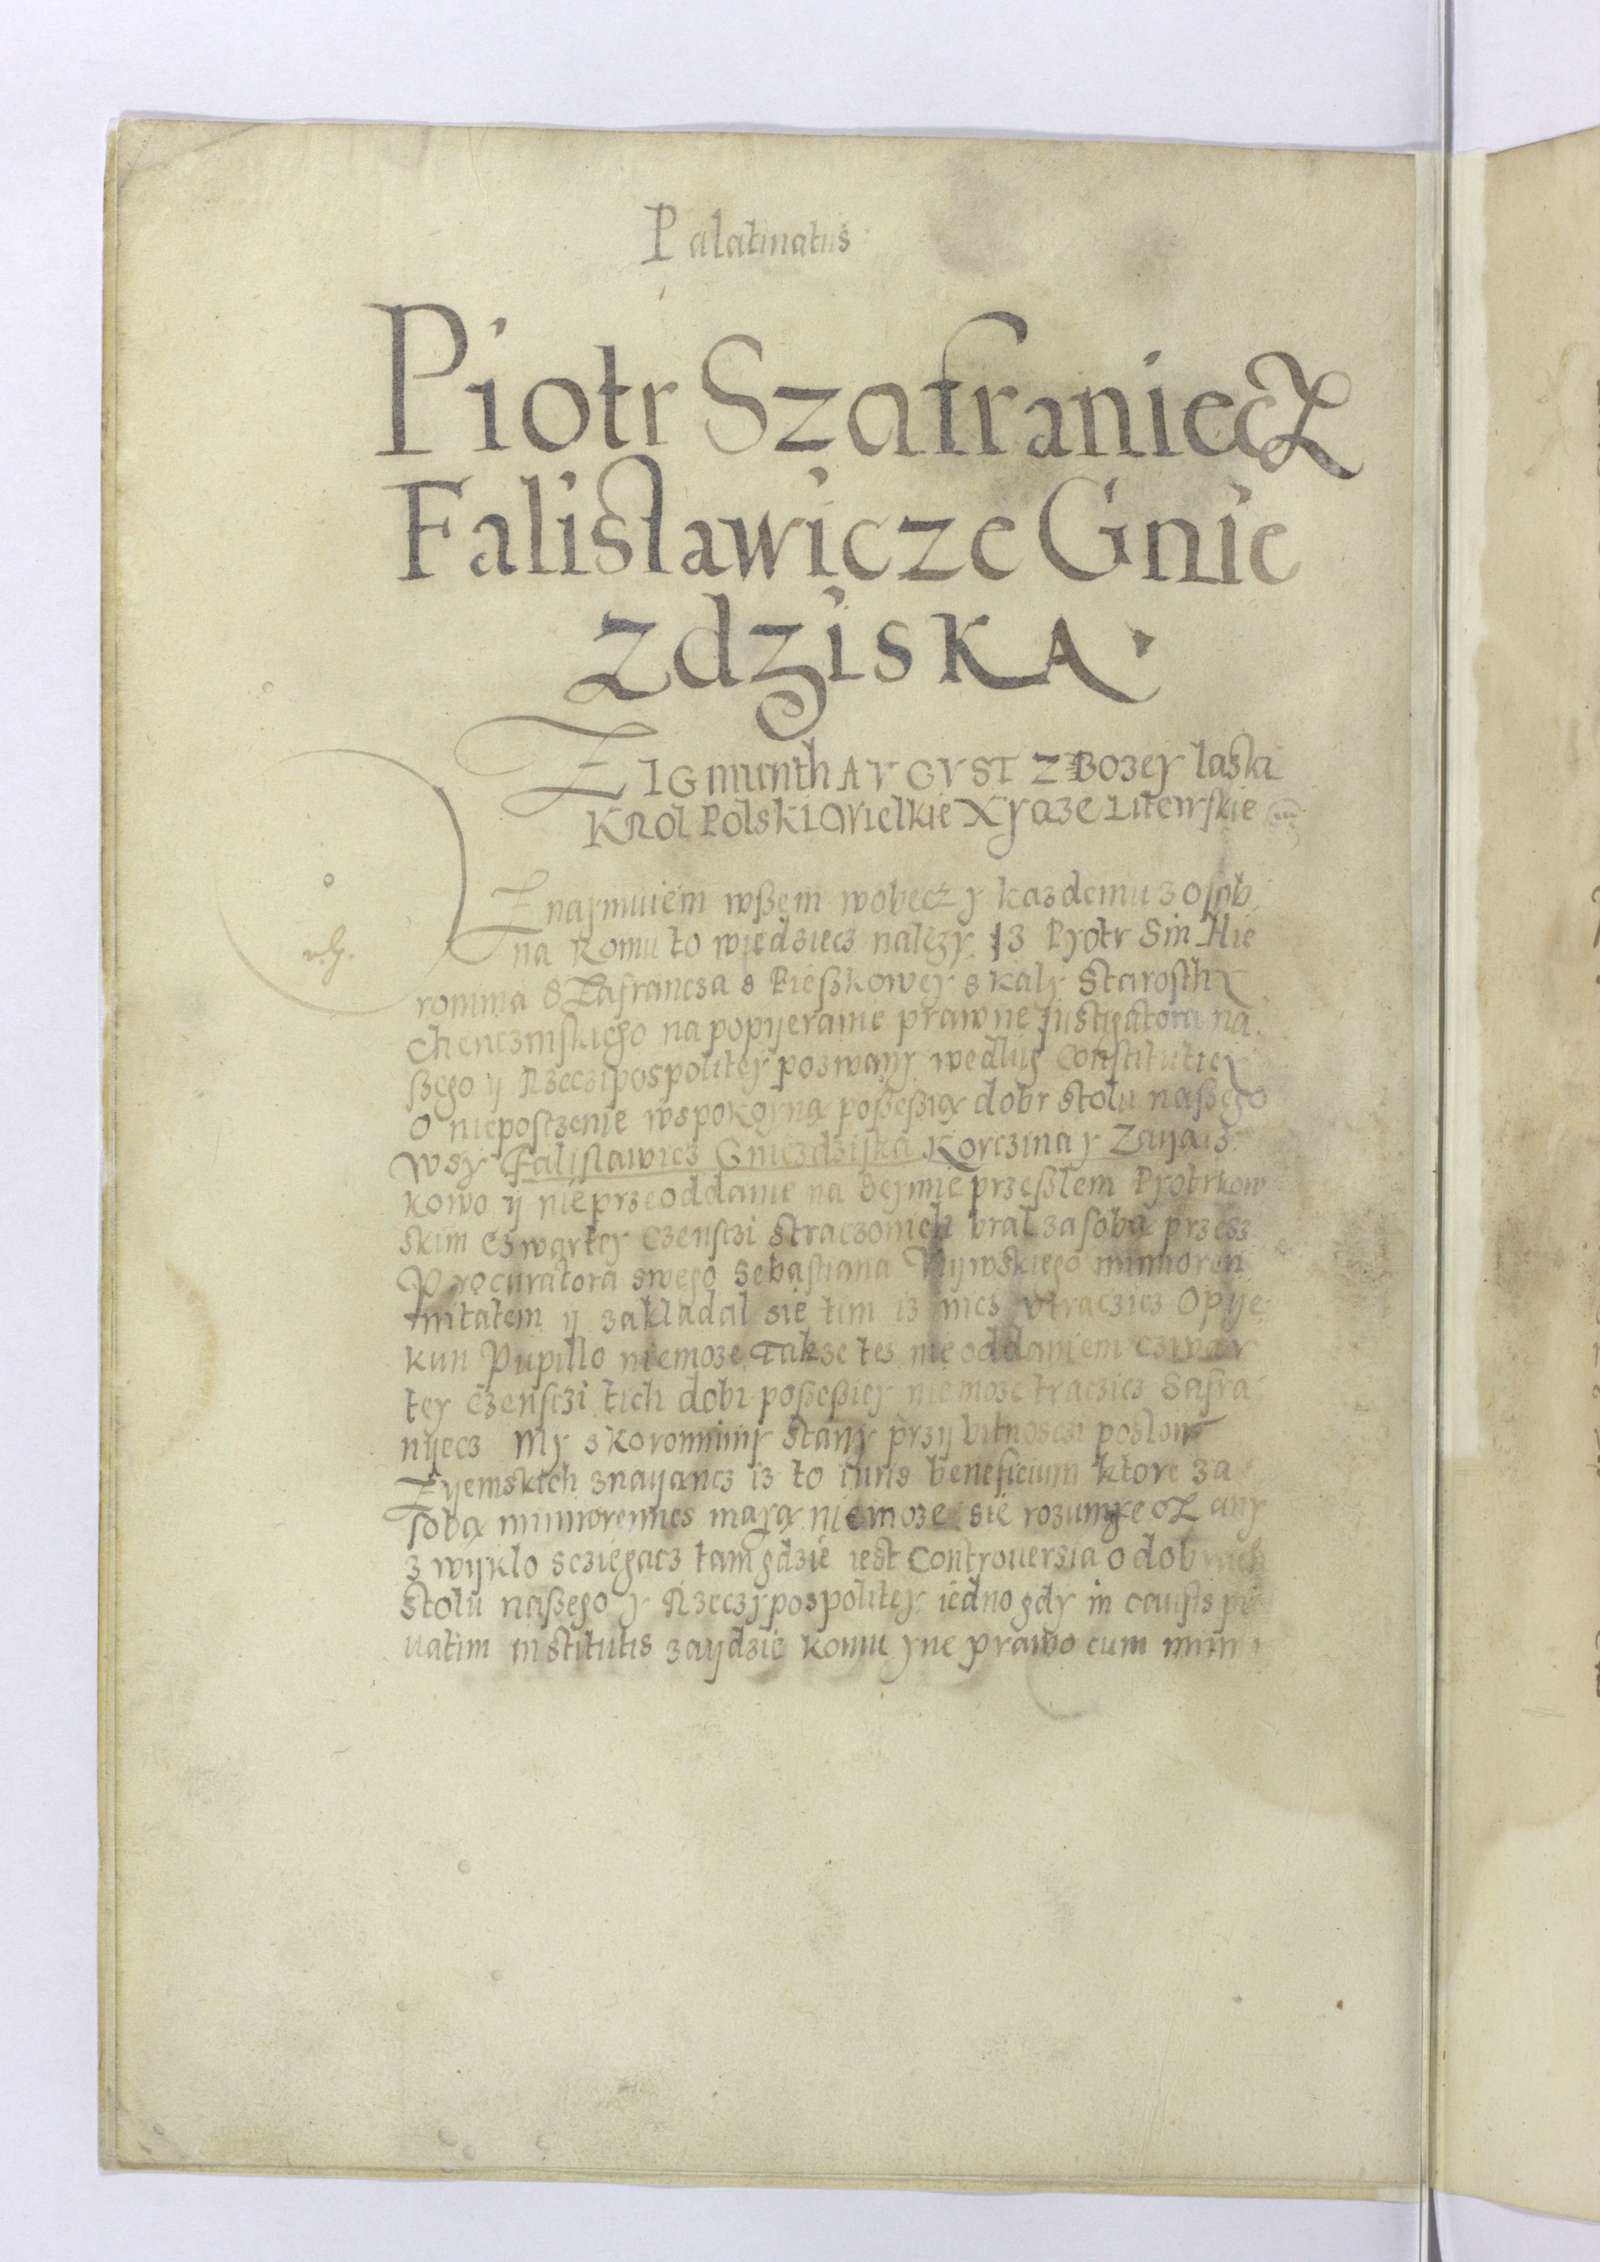 Palatinatus
Piotr Szafraniecz
Falislawicze Gnie
zdziska.
ZIGmunth AVGVST Z Bozey laski
KRol Polski Wielkie Xyąze Litewskie
Znaymuiem wßem wobecz y kazdemu z osob
na komu to wiedziecz nalezy. Iz Pyotr Sin Hie
ronima SZafrancza s Pießkowey skaly Starosthy
Chenczinskiego na popijeranie prawne Instigatora na
ßego ij Rzeczipospolitey pozwany wedlug Constitutiey
O nieposczenie wspokoyną poßeßią dobr stolu naßego
Wsy Falislawicz Gniezdziska Korczina y Zaijącz
kowo ij nieprzeoddanie na Seymie przeßlem Pyotrkow
skim Czwartey Czensczi straczonich bral zasobą przesz
Procuratora swego Sebastiana minoren
nitatem ij zakladal się tim iz nics vtraczicz Opije
kun Pupillo niemoze, Takze tes nieoddaniem czwar
tey Czensczi tich dobr poßeßiey niemoze traczicz Safra
nijecz My skoronnimy Stany przij bitnosczi poslow
Zijemskich znaijancz iz to iuris beneficium ktore za
sobą minorennes mayą niemoze się rozumyecz any
zwijklo sczięgacz tam gdzie iest Controuersia o dobrach
stolu naßego y Rzeczypospolitey iedno gdy in causis pri
uatim institutis zaijdzie komu yne prawo cum mino